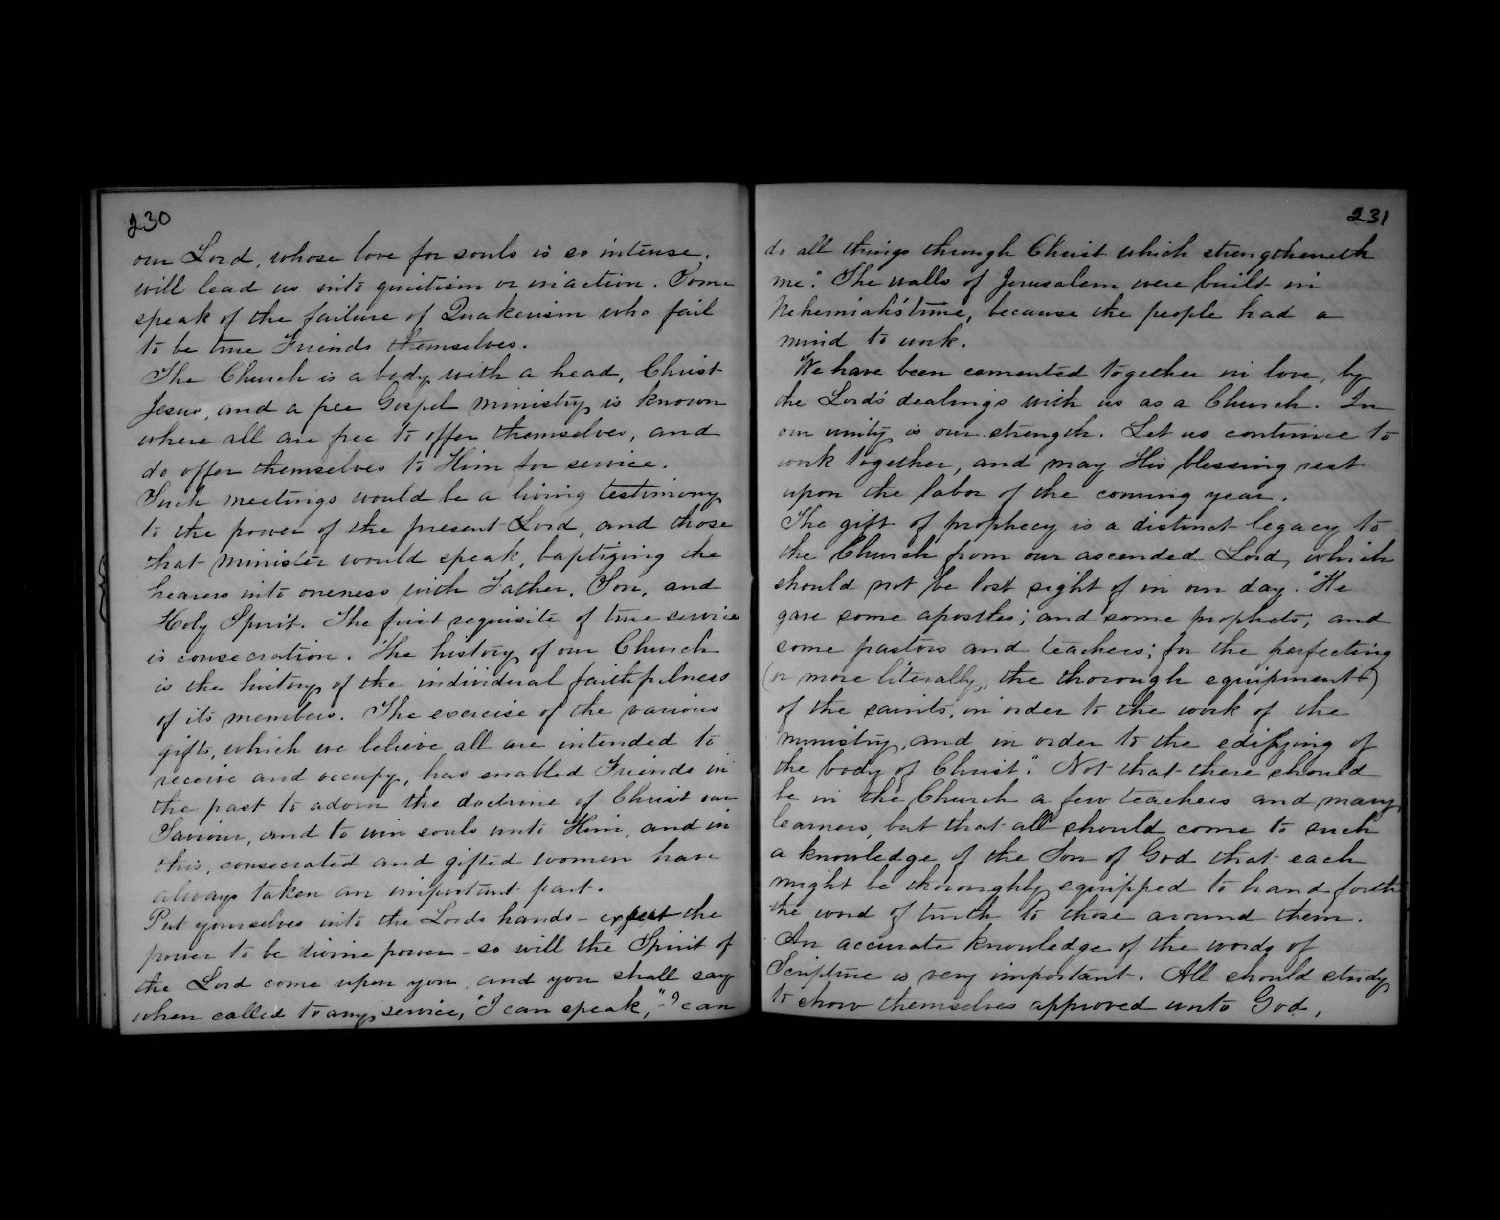 230
our Lord, whose love for souls is so intense.
will lead us into quietism or inaction. Some
speak of the failure of Quakerism who fail
to be true Friends themselves.
The Church is a body with a head, Christ
Jesus, and a free Gospel ministry is known
where all are free to offer themselves, and
do offer themselves to Him for service.
Such meetings would be a living testimony
to the power of the present Lord, and those
that minister would speak, baptizing the
hearers into oneness with Father, Son, and
Holy Spirit. The first requisite of true service
is consecration. The history of our Church
is the history of the individual faithfulness
of its members. The exercise of the various
gifts, which we believe all are intended to
receive and occupy, has enabled Friends in
the past to adorn the doctrine of Christ our
Saviour, and to win souls unto Him, and in
this, consecrated and gifted women have
always taken an important part.
Put yourselves into the Lords hands - expect the
power to be divine power - so will the Spirit of
the Lord come upon you, and you shall say
when called to any service, "I can speak," "I can
231
do all things through Christ which strengtheneth
me." The walls of Jerusalem were built in
Nehemiah's time, because the people had a
mind to work.
We have been cemented together in love, by
the Lord's dealings with us as a Church. In
our unity is our strength. Let us continue to
work together, and may His blessing rest
upon the labor of the coming year.
The gift of prophecy is a distinct legacy to
the Church from our ascended Lord, which
should not be lost sight of in our day. "He
gave some apostles; and some prophets; and
some pastors and teachers; for the perfecting
(or more literally, the thorough equipment)
of the saints, in order to the work of the
ministry, and in order to the edifying of
the body of Christ." Not that there should
be in the Church a few teachers and many
learners, but that all should come to such
a knowledge of the Son of God that each
might be thoroughly equipped to hand forth
the word of truth to those around them.
An accurate knowledge of the words of
Scripture is very important. All should study
to show themselves approved unto God,